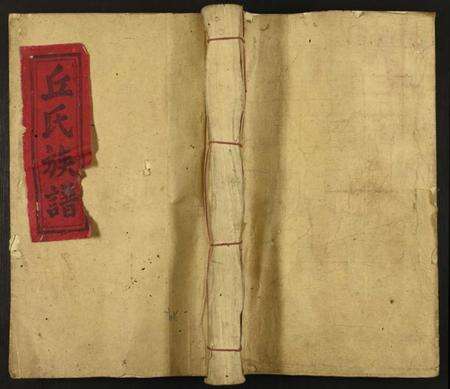 丘氏族譜